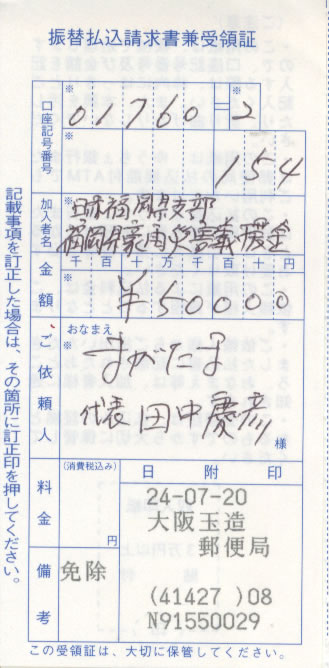 振替払込請求書兼受領証
口座記号番号
※ 01760=2
※ 154
加入者名
※ 日赤福岡県支部
福岡県豪雨災害義援金
金額
千 百 十 万 千 百 十 円
※ ¥50000
ご依頼人
おなまえ
※
代表 田中慶彦
様
料金
(消費税込み)
円
日附印
24-07-20
大阪玉造
郵便局
(41427 )08
N91550029
備考
免除
記載事項を訂正した場合は、その箇所に訂正印を押してください。
この受領証は、大切に保管してください。